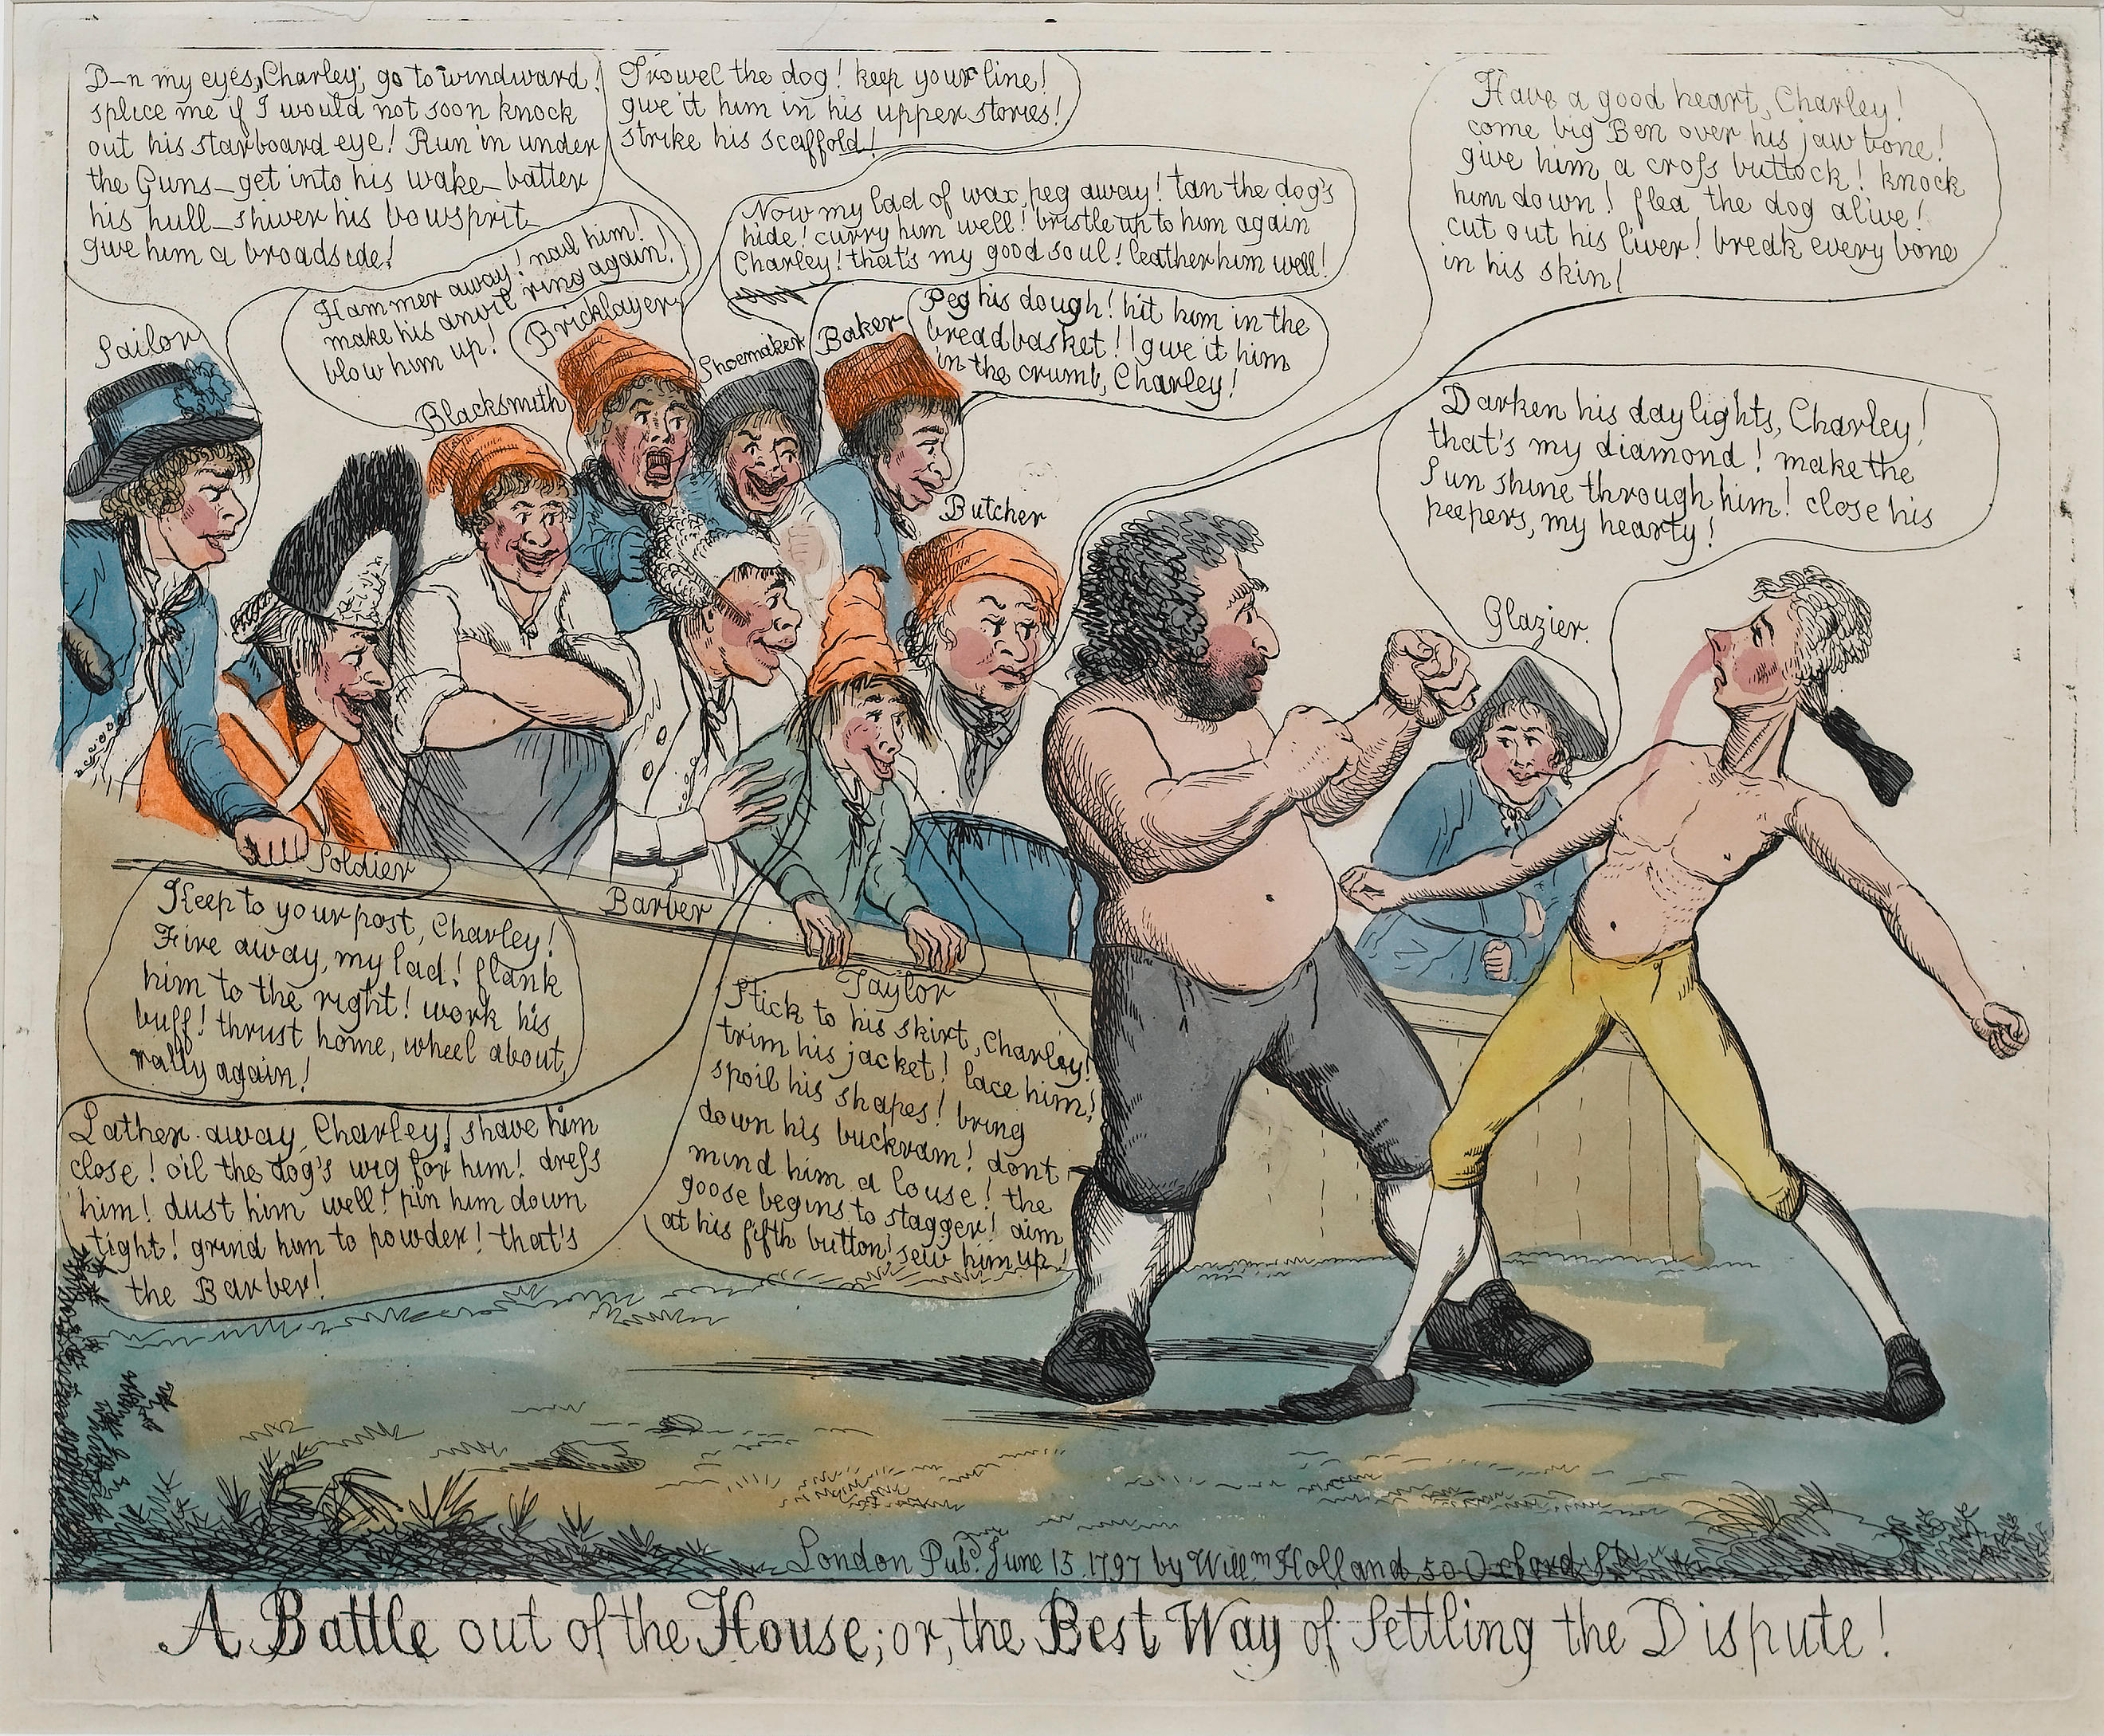 D–n my eyes, Charley, go to windward!
splice me if I would not soon knock
out his starboard eye! Run in under
the Guns_ get into his wake_ batter
his hull_ shiver his bowsprit_
give him a broadside!
Sailor
Trowel the dog! keep your line!
give it him in his upper stories!
strike his scaffold!
Bricklayer
Hammer away! nail him!
make his anvil ring again!
blow him up!
Blacksmith
Now my lad of wax, peg away! tan the dog's
hide! curry him well! bristle up to him again
Charley! that's my good soul! leather him well!
Shoemaker
Baker
Peg his dough! hit him in the
breadbasket!! give it him
in the crumb, Charley!
Have a good heart, Charley!
come big Ben over his jaw bone!
give him a cross buttock! knock
him down! flea the dog alive!
cut out his liver! break every bone
in his skin!
Butcher
Darken his day lights, Charley!
that's my diamond! make the
Sun shine through him! close his
peepers, my hearty!
Glazier.
Soldier
Keep to your post, Charley!
Fire away, my lad! flank
him to the right! work his
buff! thrust home, wheel about,
rally again!
Barber
Lather away, Charley! shave him
close! oil the dog's wig for him! dress
him! dust him well! pin him down
tight! grind him to powder! that's
the Barber!
Taylor
Stick to his skirt, Charley!
trim his jacket! lace him!
spoil his shapes! bring
down his buckram! dont
mind him a louse! the
goose begins to stagger! aim
at his fifth button! sew him up!
London Pubd. June 15. 1797 by Willm. Holland, 50 Oxford St.
A Battle out of the House; or, the Best Way of Settling the Dispute!